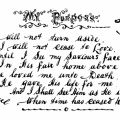 My Purpose.
I will not turn aside
I will not cease to Love
Until I see my Saviour's Face
In His fair home above
He loved me unto Death
He gave His life for me
And I shall see Him as He is
When time has ceased to